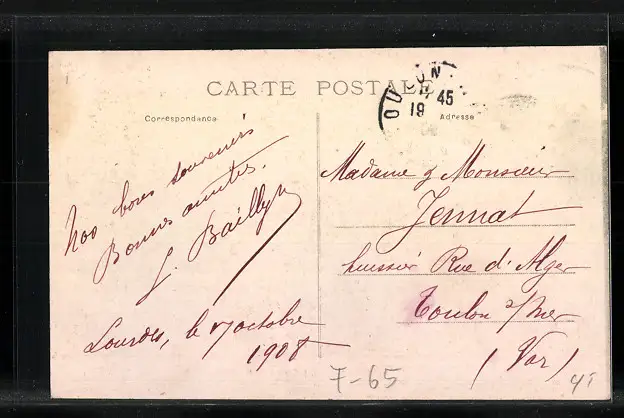 CARTE POSTALE
Correspondance
Adresse
OU ON
17 45
19
Nos bons souvenirs
Bonnes amitiés.
J. Bailly
Lourdes, le 7 octobre
1908
Madame & Monsieur
Jennat
huissier Rue d'Alger
Toulon s/Mer
(Var)
7-65